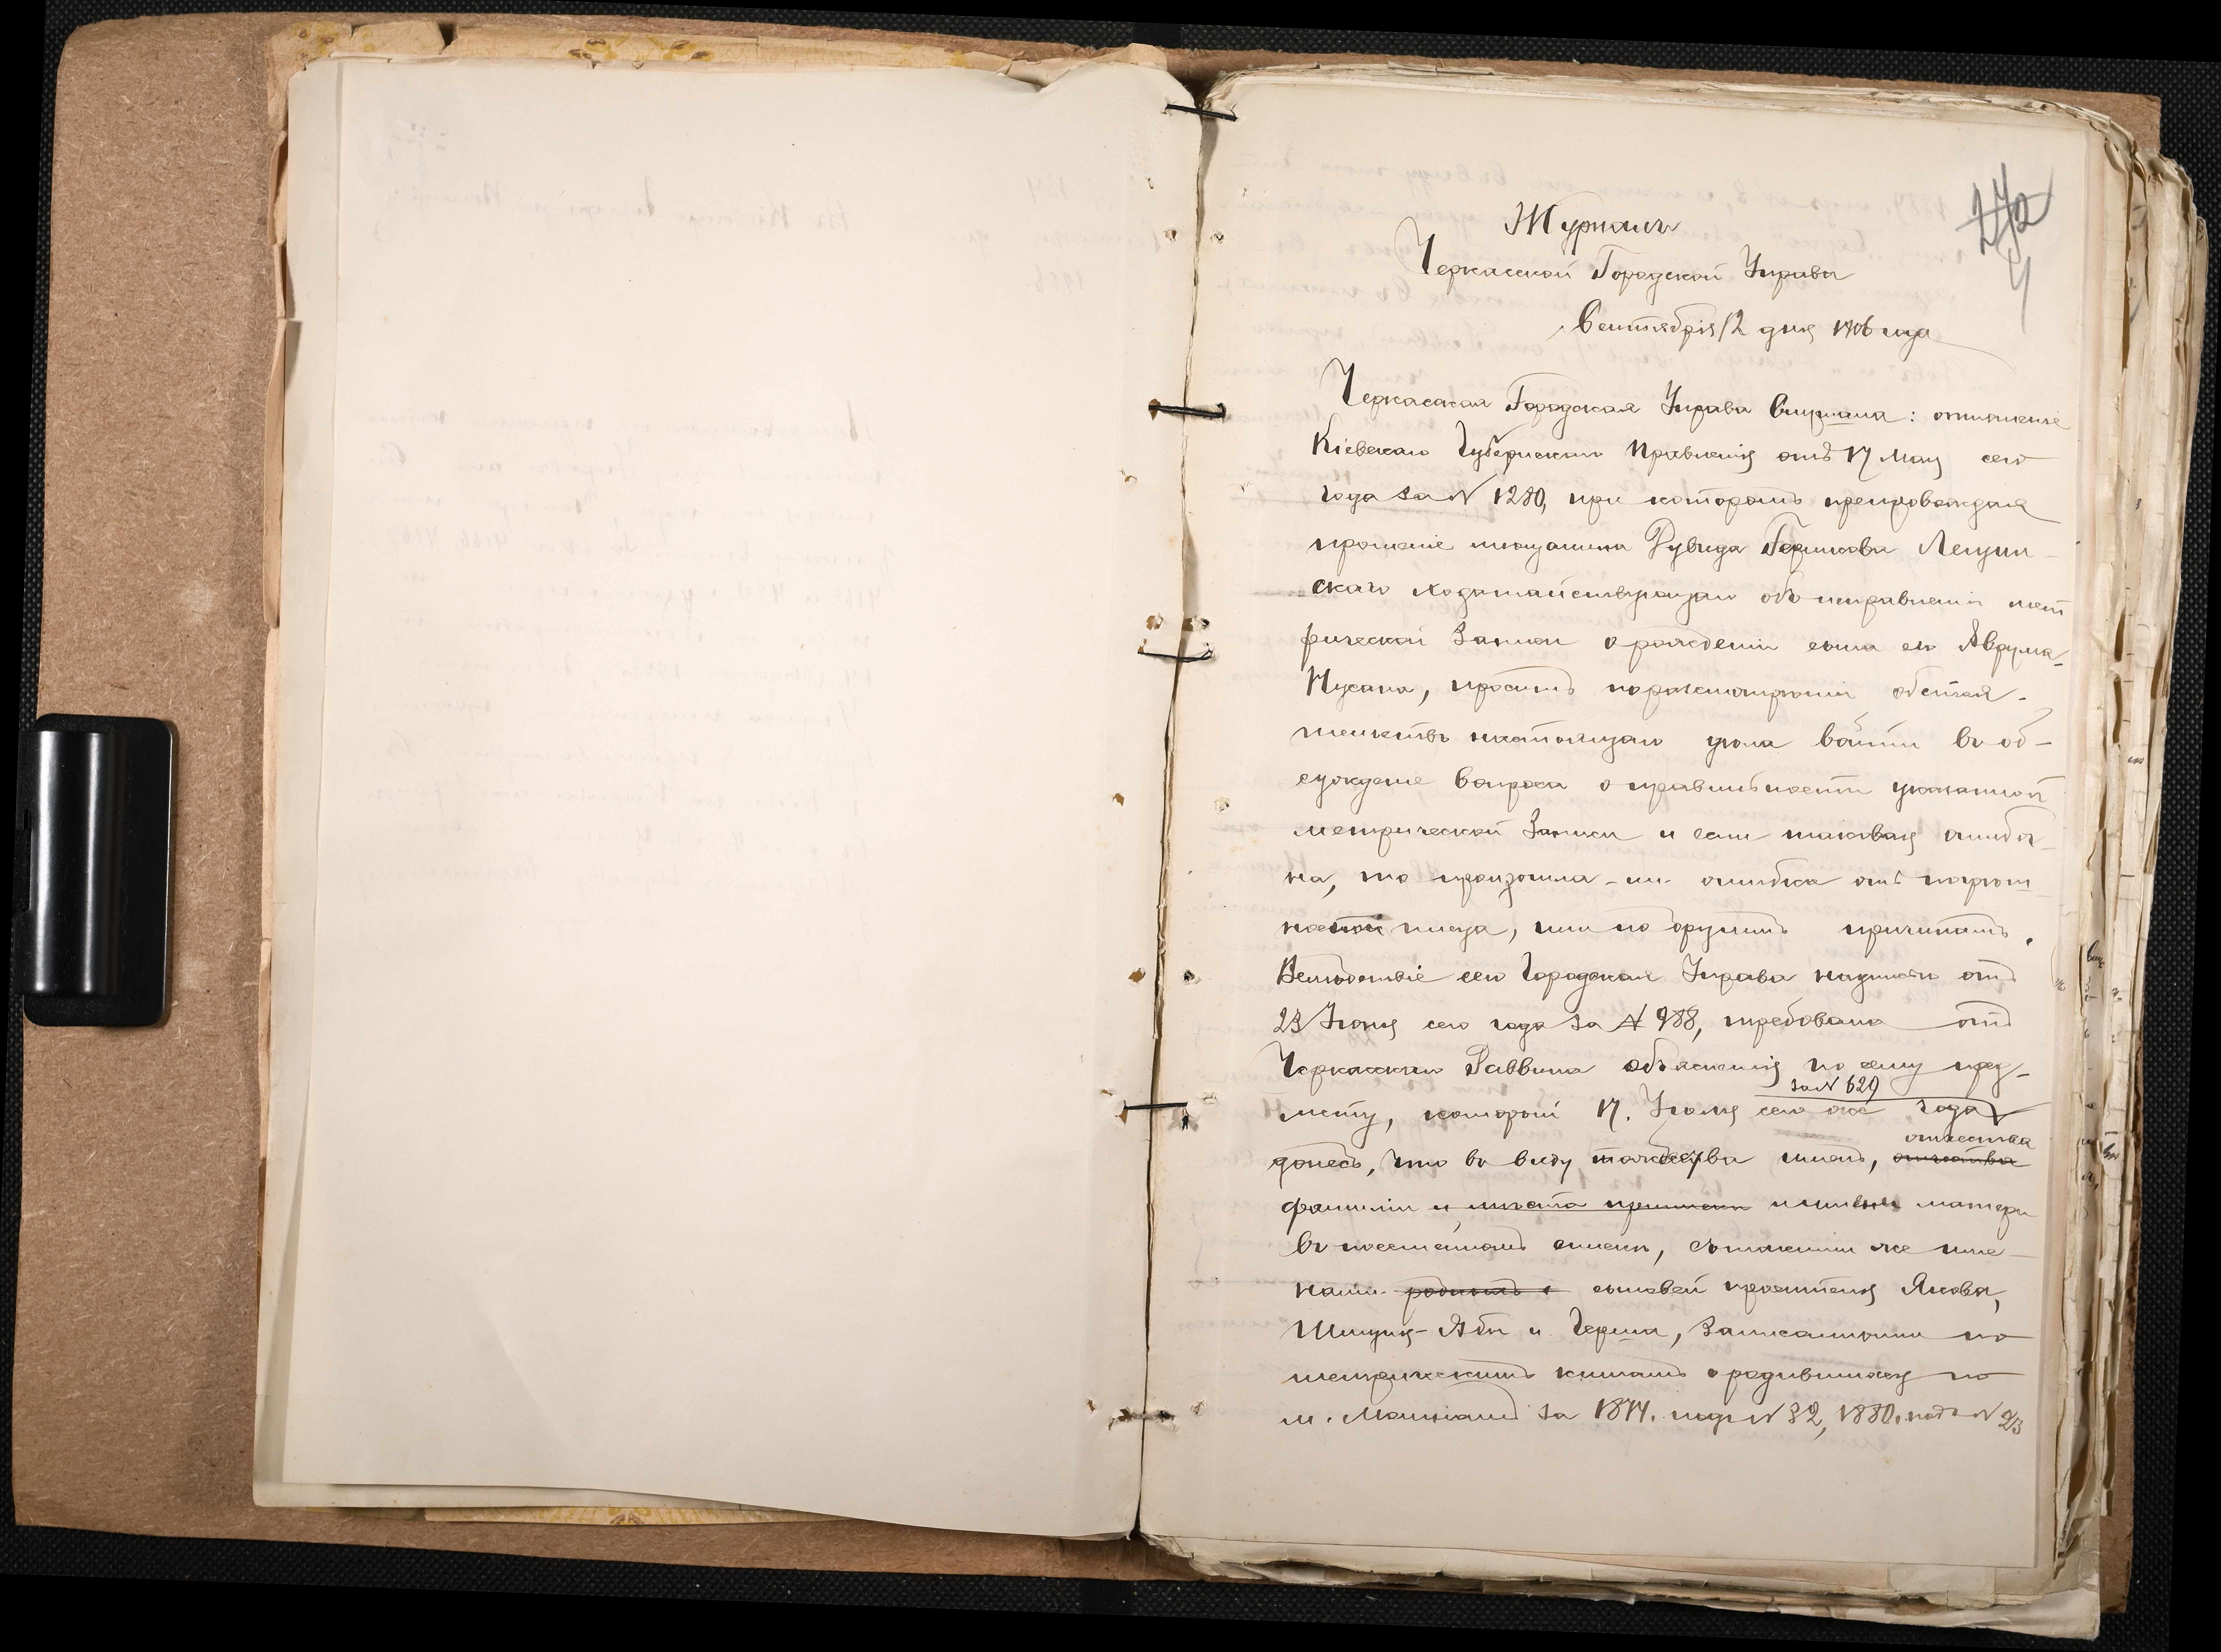 272
4
Журналъ
Черкасской Городской Управы
Сентября 12 дня 1906 года
Черкасская Городская Управа Слушала: отношеніе
Кіевскаго Губернскаго Правленія отъ 17 Мая сего
года за № 1280, при которомъ препровождая
прошеніе мѣщанина Рувида Гершкова Лещин-
скаго ходатайствующаго объ исправленіи мет
рической записи о рожденіи сына его Аврума-
Нусана, проситъ по разсмотрѣніи обстоя-
тельствъ настоящаго дѣла войти въ об-
сужденіе вопроса о правильности указанной
метрической записи и если таковая ошибоч-
на, то произошла-ли ошибка отъ погрѣш-
ности писца, или по другимъ причинамъ.
Вслѣдствіе сего Городская Управа надписью отъ
23 Іюня сего года за № 988, требовала отъ
Черкасскаго Раввина объясненія по сему пред-
за № 629
мету, который 17. Іюля сего же года
отчества
донесъ, что въ виду тождества имени, отчества
фамиліи и мѣста приписки имени матери
въ посемейномъ спискѣ, съ такими же име-
нами сыновей просителя Якова,
и Герша, записанными по
метрическимъ книгамъ о родившихся по
м. за 1874. подъ № 32, 1880. подъ № 23